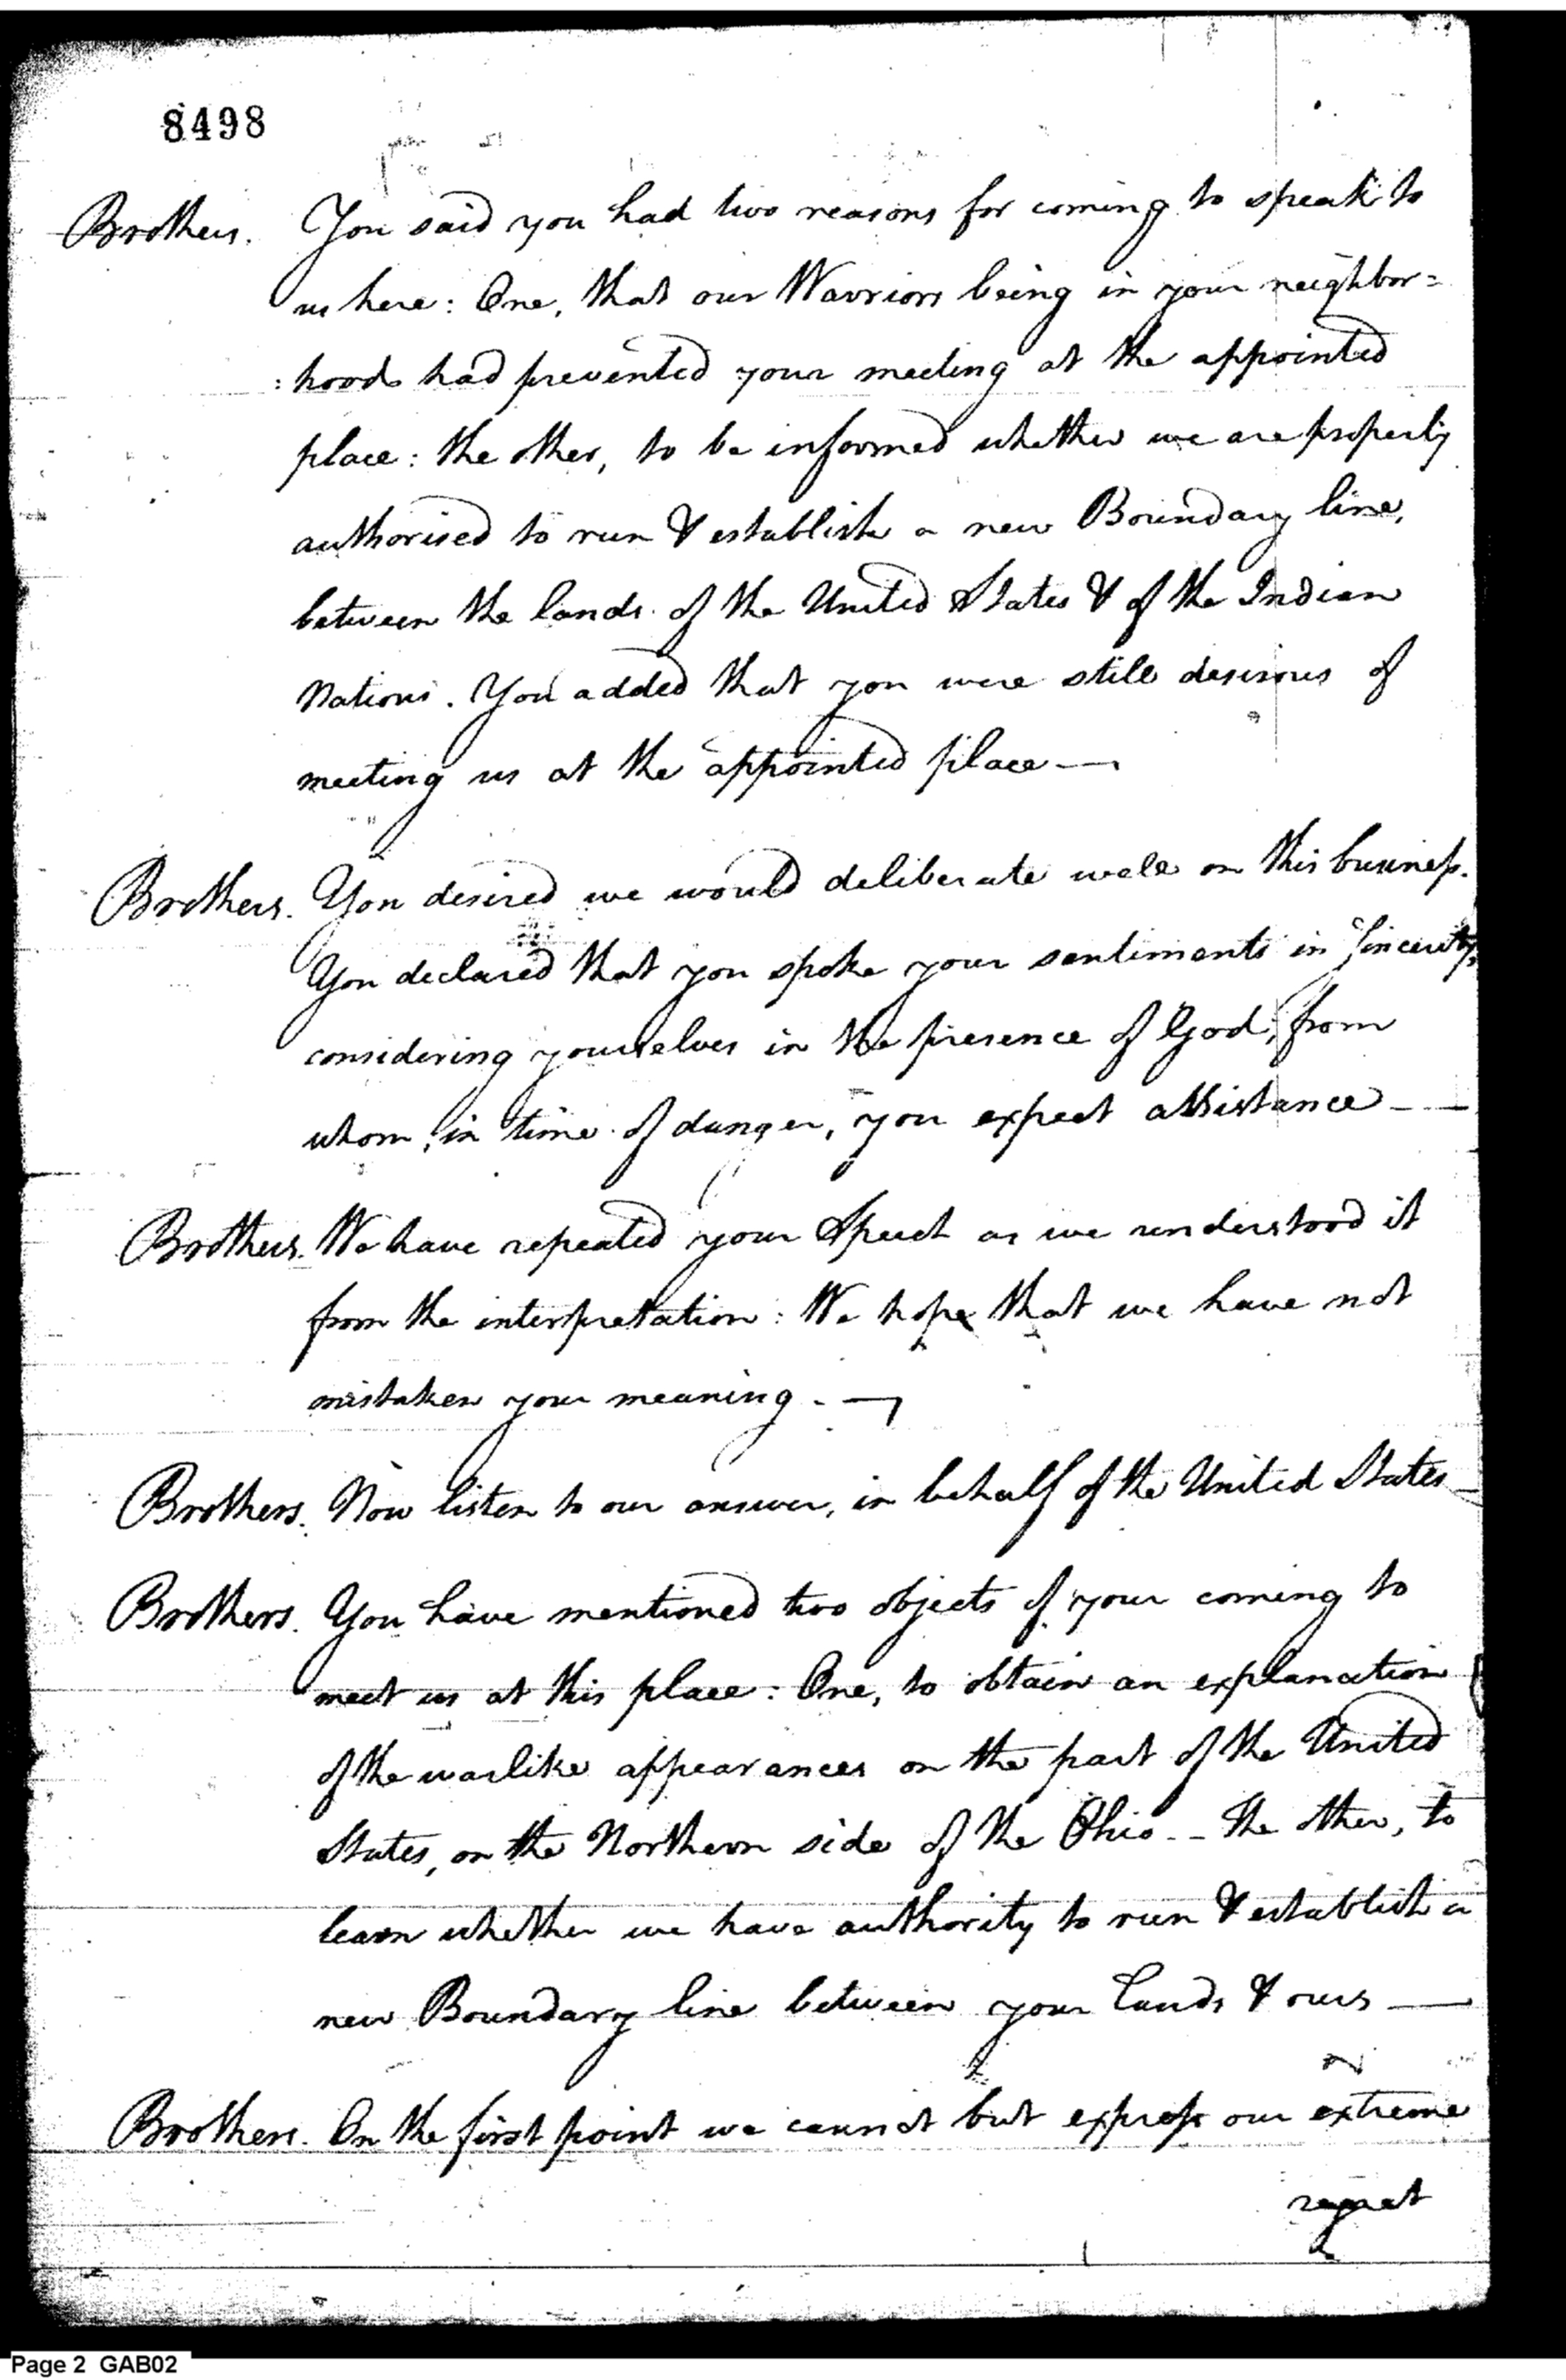 8498
Brothers. You said you had two reasons for coming to speak to
us here: One, that our Warriors being in your neighbor=
:hood had prevented your meeting at the appointed
place: the other, to be informed whether we are properly
authorised to run & establish a new Boundary line,
between the lands of the United States & of the Indian
Nations. You added that you were still desirous of
meeting us at the appointed place—
Brothers. You desired we would deliberate well on this business.
You declared that you spoke your sentiments in sincerity,
considering yourselves in the presence of God; from
whom, in time of danger, you expect assistance—
Brothers. We have repeated your Speech as we understood it
from the interpretation: We hope that we have not
mistaken your meaning.—
Brothers. Now listen to our answer, in behalf of the United States—
Brothers. You have mentioned two objects of your coming to
meet us at this place: One, to obtain an explanation
of the warlike appearances on the part of the United
States, on the Northern side of the Ohio-- The other, to
learn whether we have authority to run & establish a
new Boundary line between your Lands & ours—
Brothers. On the first point we cannot but express our extreme
regret
Page 2 GAB02